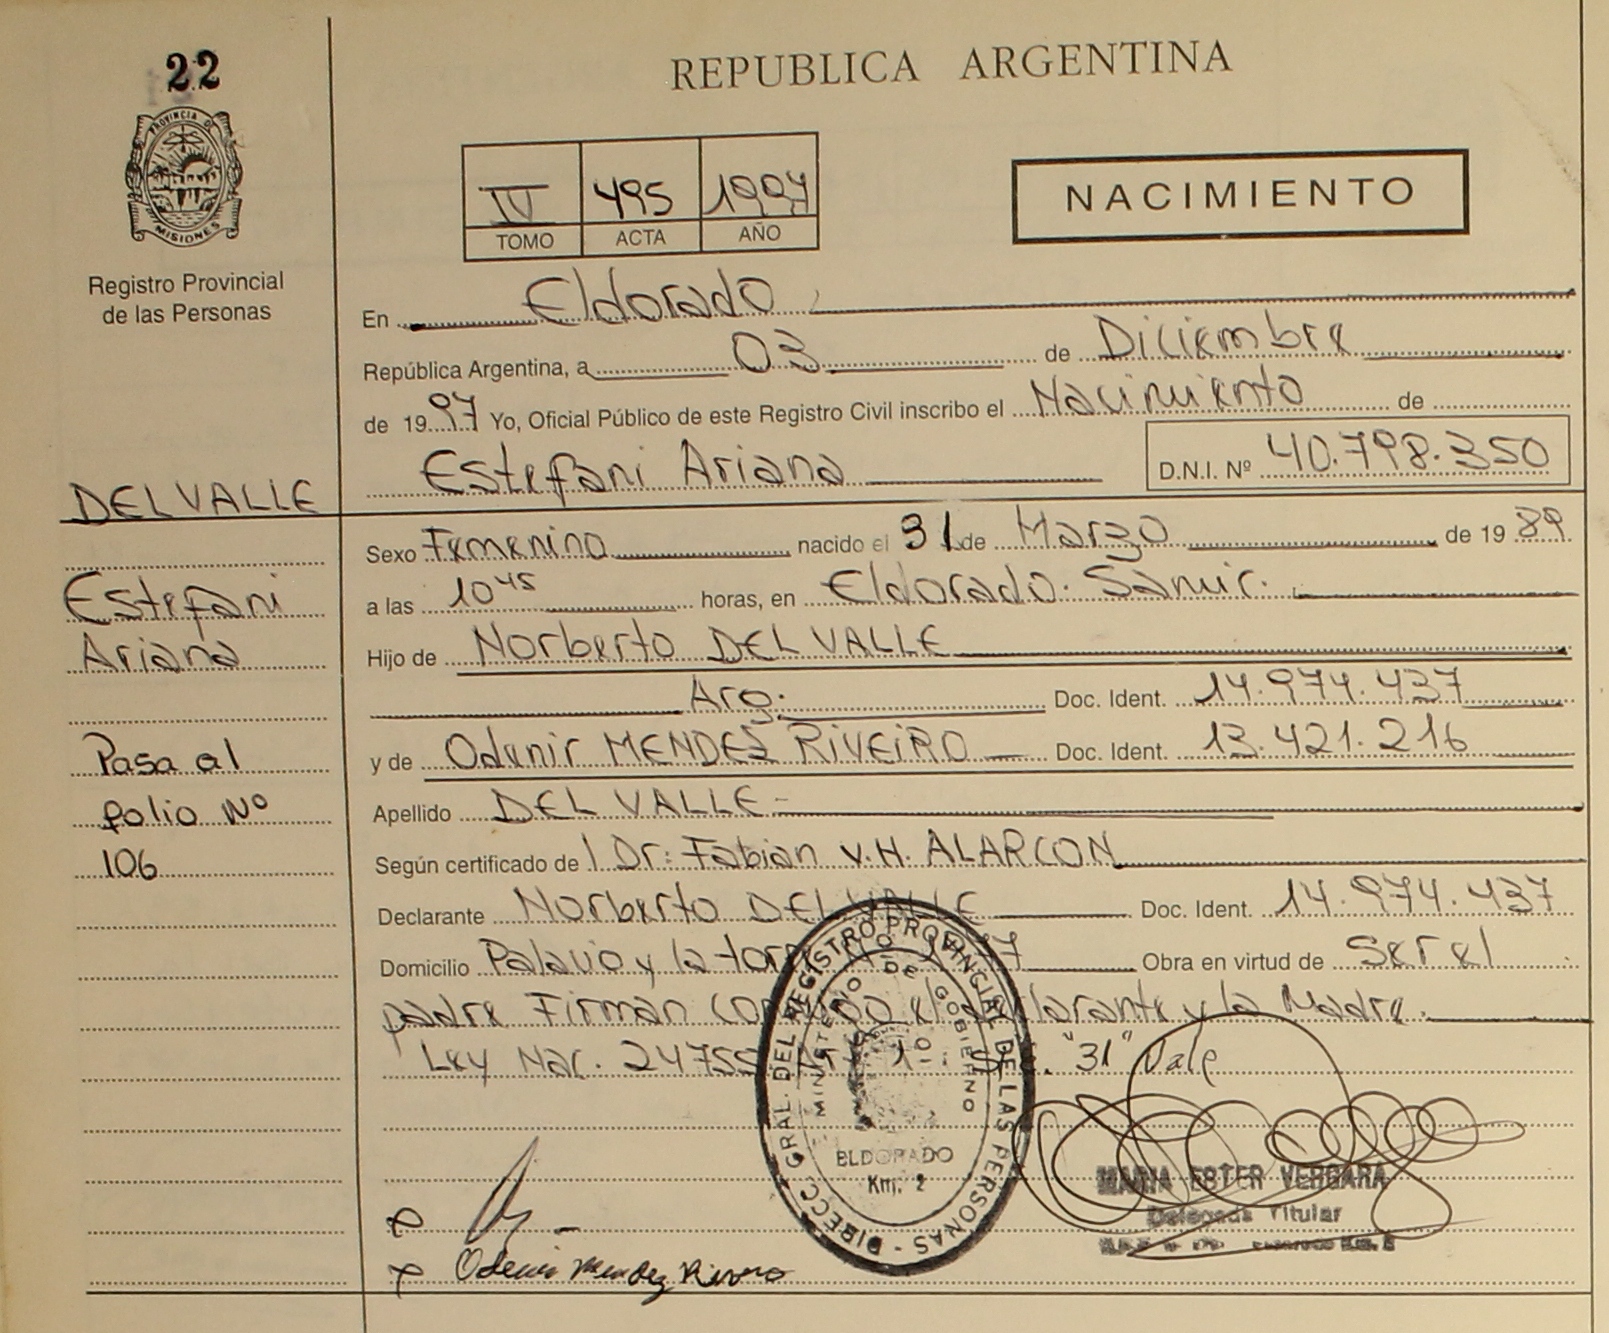 22
PROVINCIA DE
MISIONES
Registro Provincial
de las Personas
REPUBLICA ARGENTINA
IV 495 1997
TOMO ACTA AÑO
NACIMIENTO
En Eldorado
República Argentina, a 03 de Diciembre
de 1997 Yo, Oficial Público de este Registro Civil inscribo el Nacimiento de
Estefani Ariana D.N.I. Nº 40.798.350
DEL VALLE
Estefani
Ariana
Pasa al
folio Nº
106
Sexo Femenino nacido el 31 de Marzo de 1989
a las 10 45 horas, en Eldorado. Samic.
Hijo de Norberto DEL VALLE
Arg. Doc. Ident. 14.974.437
y de Odenir MENDEZ RIVEIRO Doc. Ident. 13.421.216
Apellido DEL VALLE
Según certificado de Dr. Fabian V.H. ALARCON
Declarante Norberto DEL VALLE Doc. Ident. 14.974.437
Domicilio Palacio y la Obra en virtud de Ser el
padre Firman el declarante y la Madre.
Ley Nac. 24755 Art 1 "31" Vale
DIRECC. GRAL. DEL REGISTRO PROVINCIAL DE LAS PERSONAS
MINISTERIO DE GOBIERNO
ELDORADO
Km. 2
MARIA ESTER VERGARA
Delegada Titular
Mendez